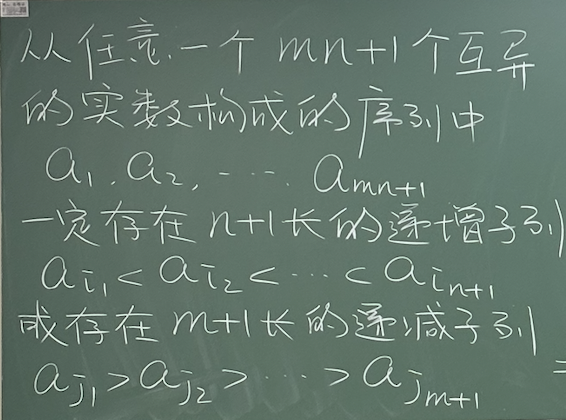 从任意一个 mn+1 个互异
的实数构成的序列中
a₁, a₂, ⋯ a_{mn+1}
一定存在 n+1长的递增子列
a_{i₁} < a_{i₂} < ⋯ < a_{i_{n+1}}
或存在 m+1长的递减子列
a_{j₁} > a_{j₂} > ⋯ > a_{j_{m+1}} =